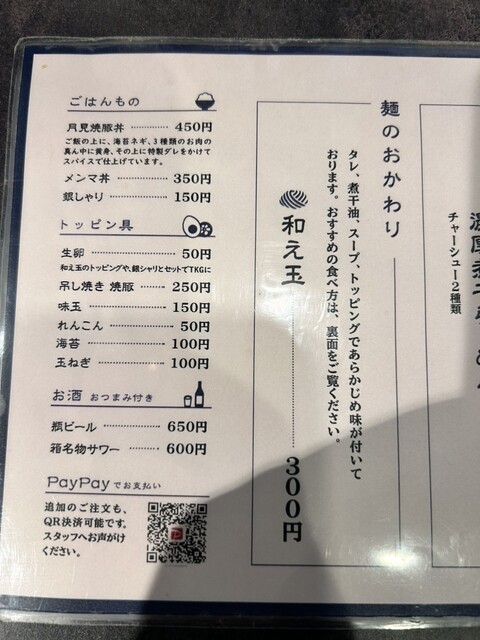 ごはんもの
月見焼豚丼 ………… 450円
ご飯の上に、海苔ネギ、3種類のお肉の
真ん中に黄身、その上に特製ダレをかけて
スパイスで仕上げています。
メンマ丼 ………… 350円
銀しゃり ………… 150円
トッピン具
生卵 ………… 50円
和え玉のトッピングや、銀シャリとセットでTKGに
吊し焼き 焼豚 ……… 250円
味玉 ………… 150円
れんこん ………… 50円
海苔 ………… 100円
玉ねぎ ………… 100円
お酒 おつまみ付き
瓶ビール ………… 650円
箱名物サワー ……… 600円
PayPayでお支払い
追加のご注文も、
QR決済可能です。
スタッフへお声がけ
ください。
濃厚煮干
チャーシュー2種類
麺のおかわり
タレ、煮干油、スープ、トッピングであらかじめ味が付いて
おります。おすすめの食べ方は、裏面をご覧ください。
和え玉 ………… 300円